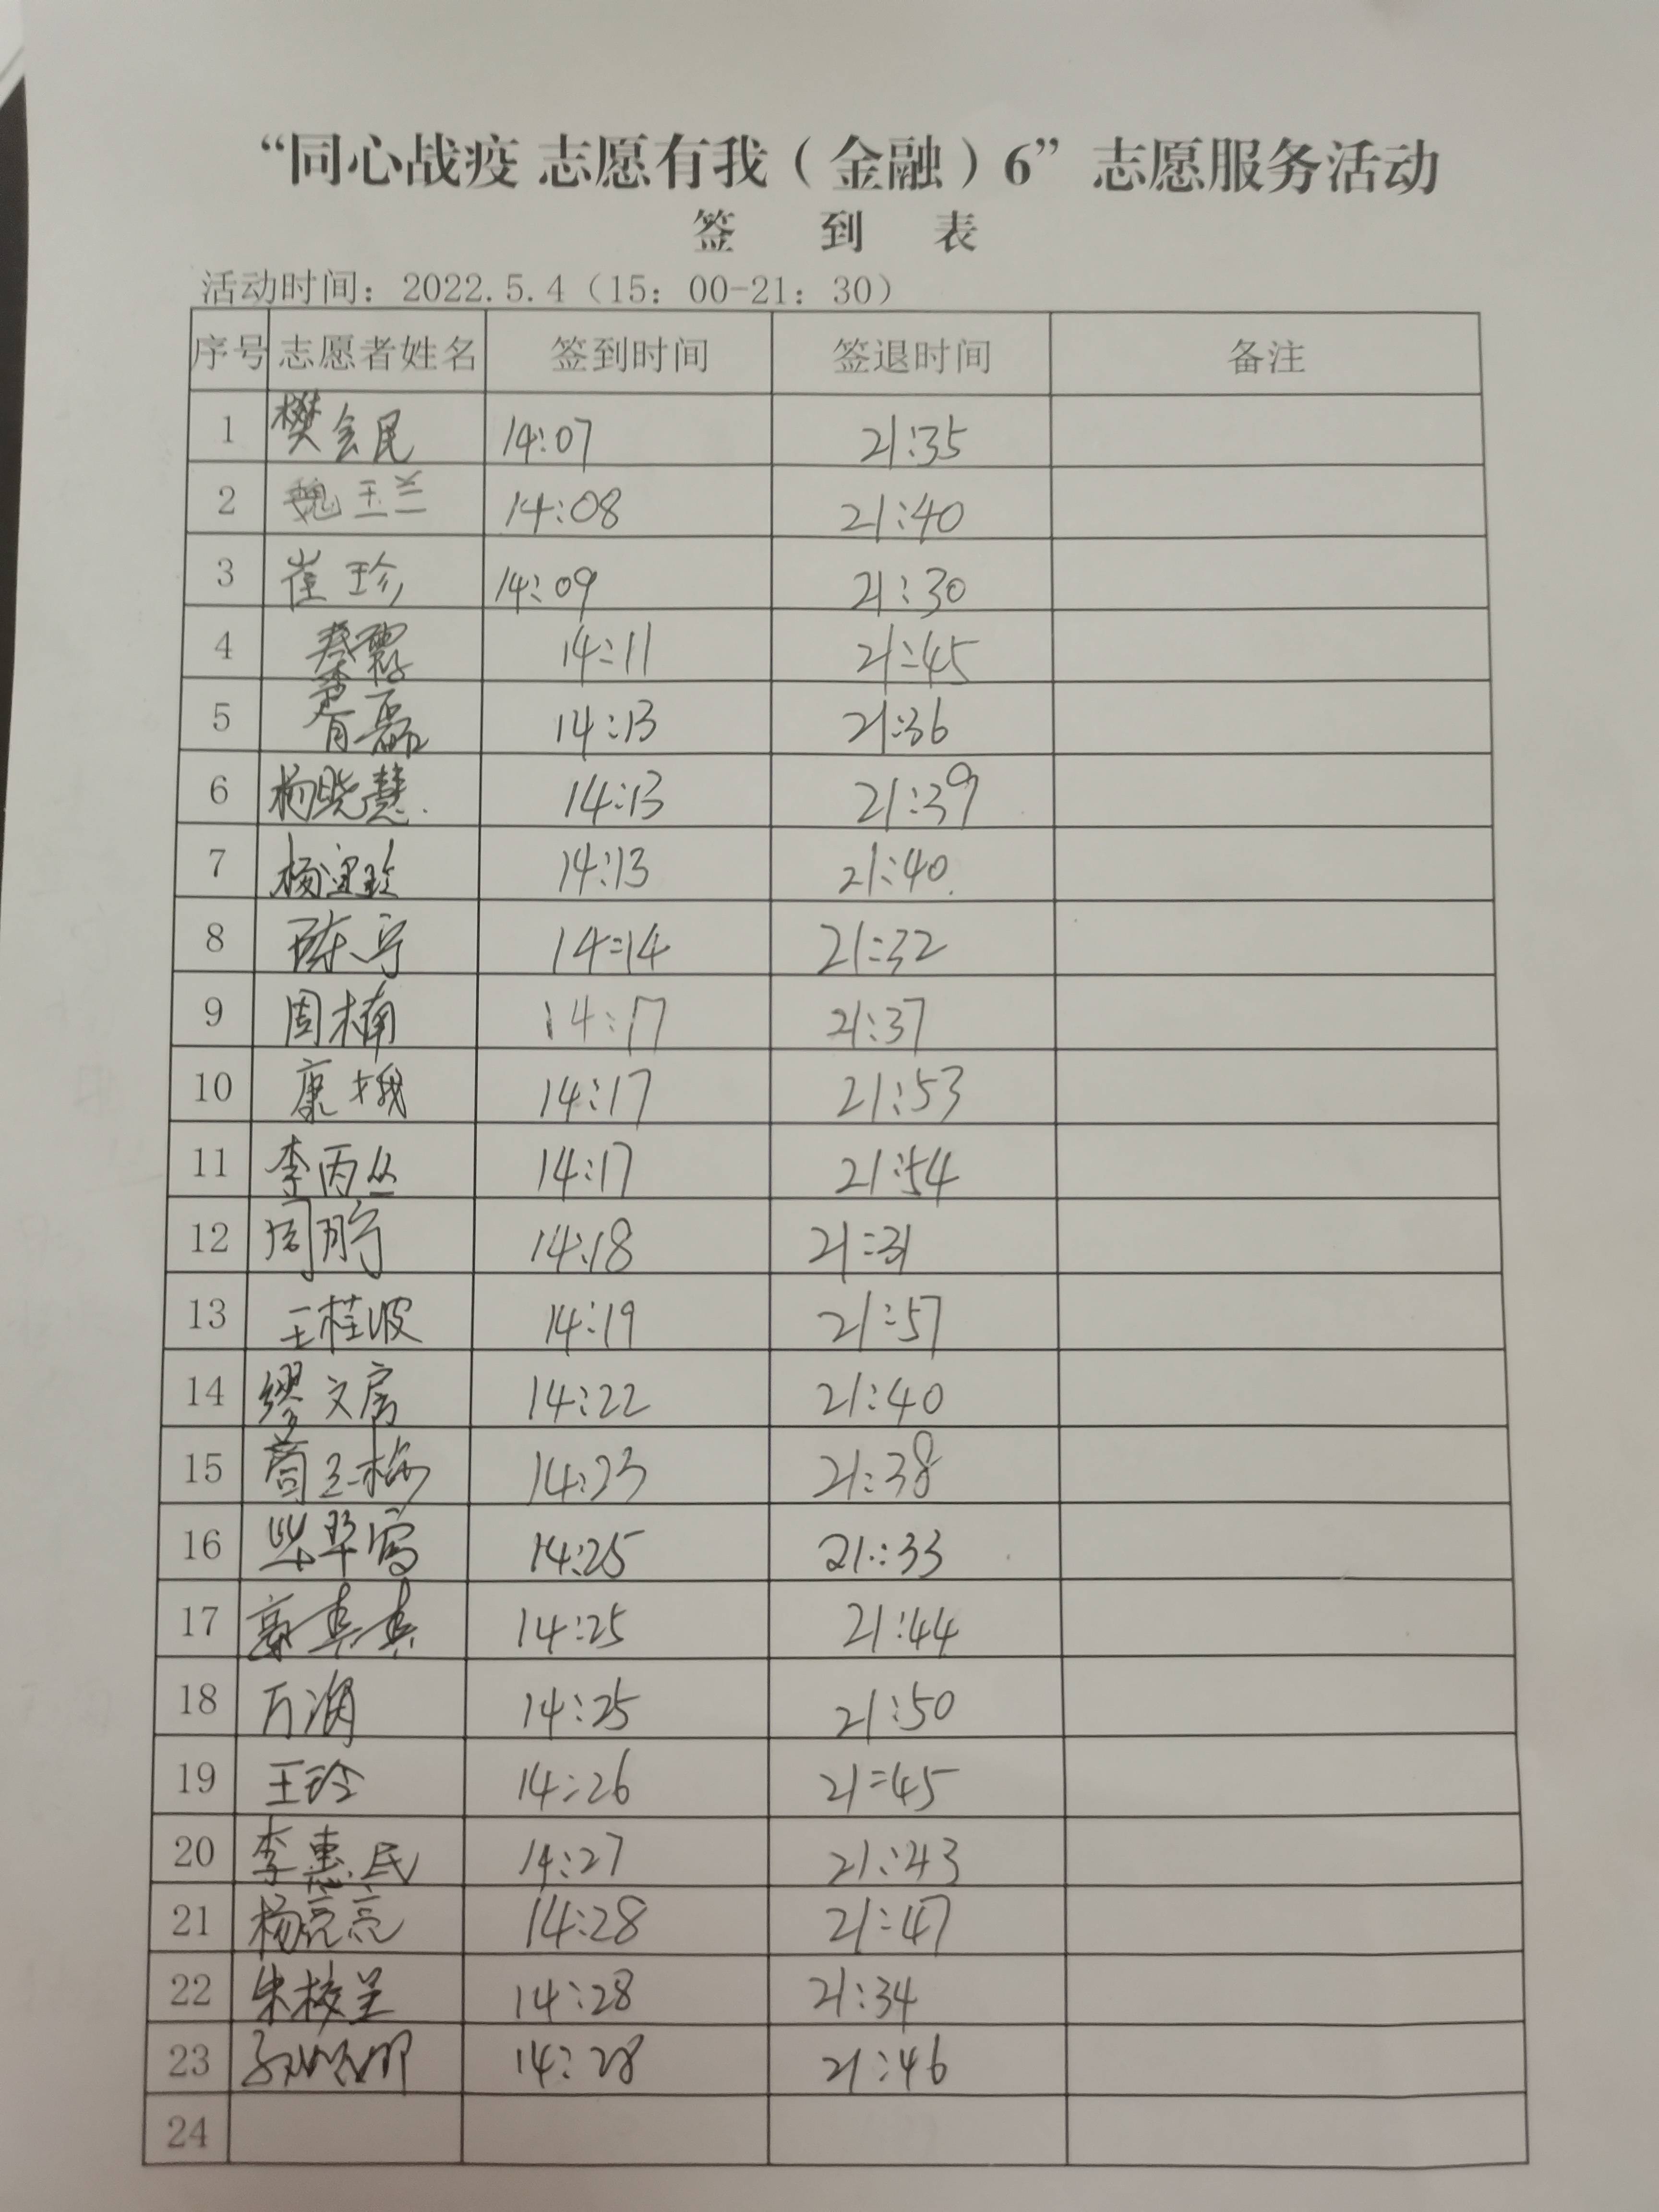 “同心战疫 志愿有我（金融）6”志愿服务活动
签 到 表
活动时间：2022.5.4（15：00-21：30）
序号 志愿者姓名 签到时间 签退时间 备注
1 樊会民 14:07 21:35
2 魏玉兰 14:08 21:40
3 崔珍 14:09 21:30
4 14:11 21:45
5 14:13 21:36
6 杨晓慧 14:13 21:39
7 14:13 21:40
8 陈宁 14:14 21:32
9 周楠 14:17 21:37
10 康 14:17 21:53
11 李丙丛 14:17 21:54
12 周 14:18 21:31
13 王桂波 14:19 21:57
14 缪文房 14:22 21:40
15 14:23 21:38
16 14:25 21:33
17 14:25 21:44
18 万润 14:25 21:50
19 王玲 14:26 21:45
20 李惠民 14:27 21:43
21 杨亮亮 14:28 21:47
22 朱 14:28 21:34
23 14:28 21:46
24